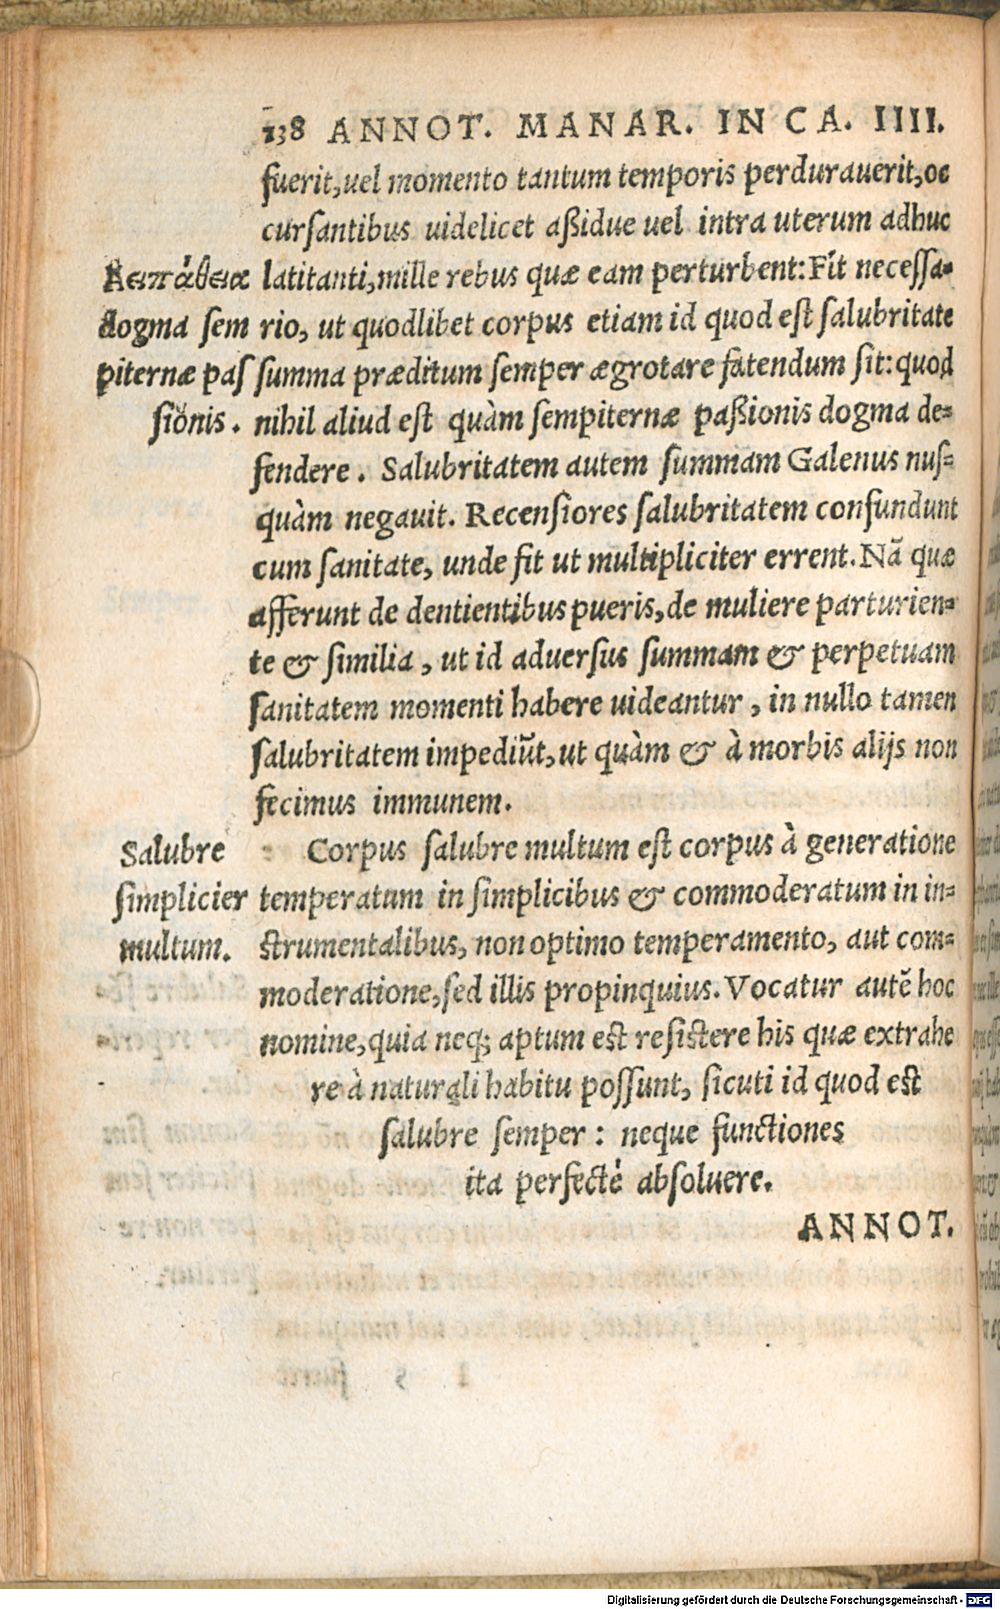 138 ANNOT. MANAR. IN CA. IIII.
fuerit, uel momento tantum temporis perdurauerit, oc
cursantibus uidelicet aßidue uel intra uterum adhuc
latitanti, mille rebus quæ eam perturbent: Fit necessa-
rio, ut quodlibet corpus etiam id quod est salubritate
summa præditum semper ægrotare fatendum sit: quod
nihil aliud est quàm sempiternæ paßionis dogma de-
fendere. Salubritatem autem summam Galenus nus-
quàm negauit. Recensiores salubritatem confundunt
cum sanitate, unde fit ut multipliciter errent. Nã quæ
afferunt de dentientibus pueris, de muliere parturien-
te & similia, ut id aduersus summam & perpetuam
sanitatem momenti habere uideantur, in nullo tamen
salubritatem impediũt, ut quàm & à morbis alijs non
fecimus immunem.
ἀειπάθεια
dogma sem
piternæ pas
sionis.
Corpus salubre multum est corpus à generatione
temperatum in simplicibus & commoderatum in in-
strumentalibus, non optimo temperamento, aut com-
moderatione, sed illis propinquius. Vocatur autẽ hoc
nomine, quia neq; aptum est resistere his quæ extrahe
re à naturali habitu possunt, sicuti id quod est
salubre semper: neque functiones
ita perfectè absoluere.
Salubre
simplicier
multum.
ANNOT.
Digitalisierung gefördert durch die Deutsche Forschungsgemeinschaft - DFG